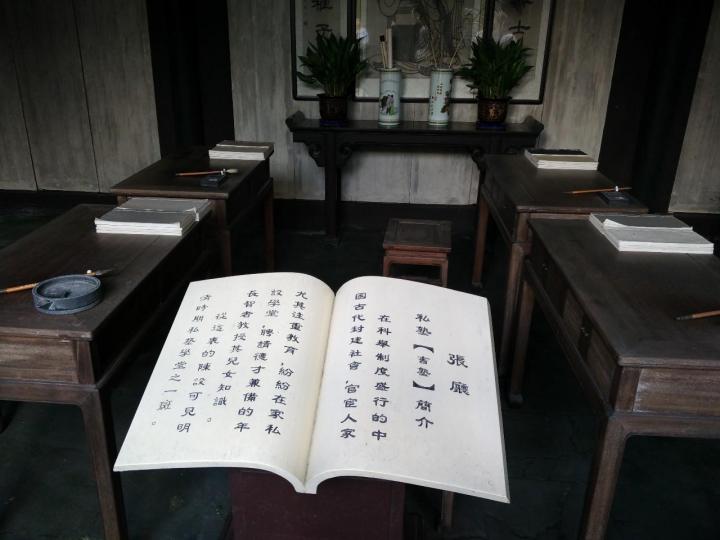 張廳
私塾【書塾】簡介
在科舉制度盛行的中
國古代封建社會,官宦人家
尤其注重教育,紛紛在家私
設學堂,聘請德才兼備的年
在智者教授其兒女知識。
從這裏的陳設可見明
清時期私塾學堂之一斑。